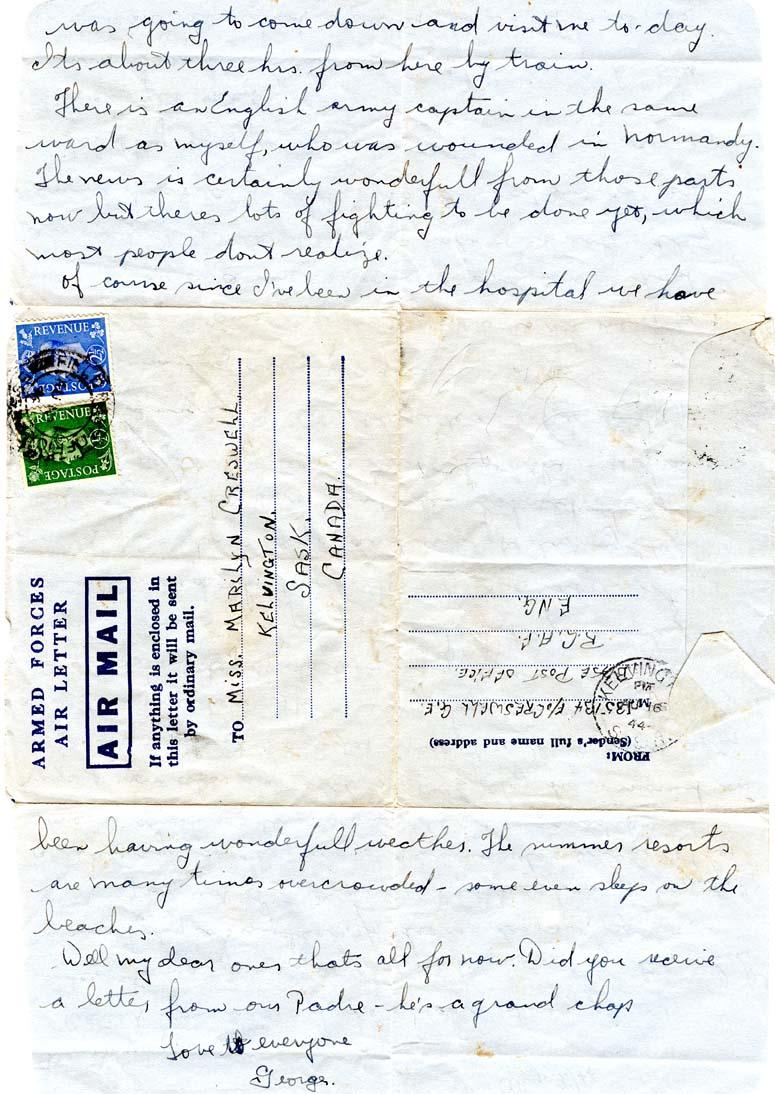 was going to come down and visit me to-day.
Its about three hrs. from here by train.
There is an English army captain in the same
ward as myself, who was wounded in Normandy.
The news is certainly wonderfull from those parts
now but theres lots of fighting to be done yet, which
most people dont realize.
Of course since I've been in the hospital we have
REVENUE
POSTAGE
REVENUE
POSTAGE
ARMED FORCES
AIR LETTER
AIR MAIL
If anything is enclosed in
this letter it will be sent
by ordinary mail.
TO MISS. MARILYN CRESWELL
KELVINGTON,
SASK.
CANADA.
FROM:
(Sender's full name and address)
CRESWELL G.E.
POST OFFICE.
R.C.A.F.
ENG.
KELVING
PM
44
been having wonderfull weather. The summer resorts
are many times overcrowded - some even sleep on the
beaches.
Well my dear ones thats all for now. Did you receive
a letter from our Padre - he's a grand chap
Love to everyone
George.